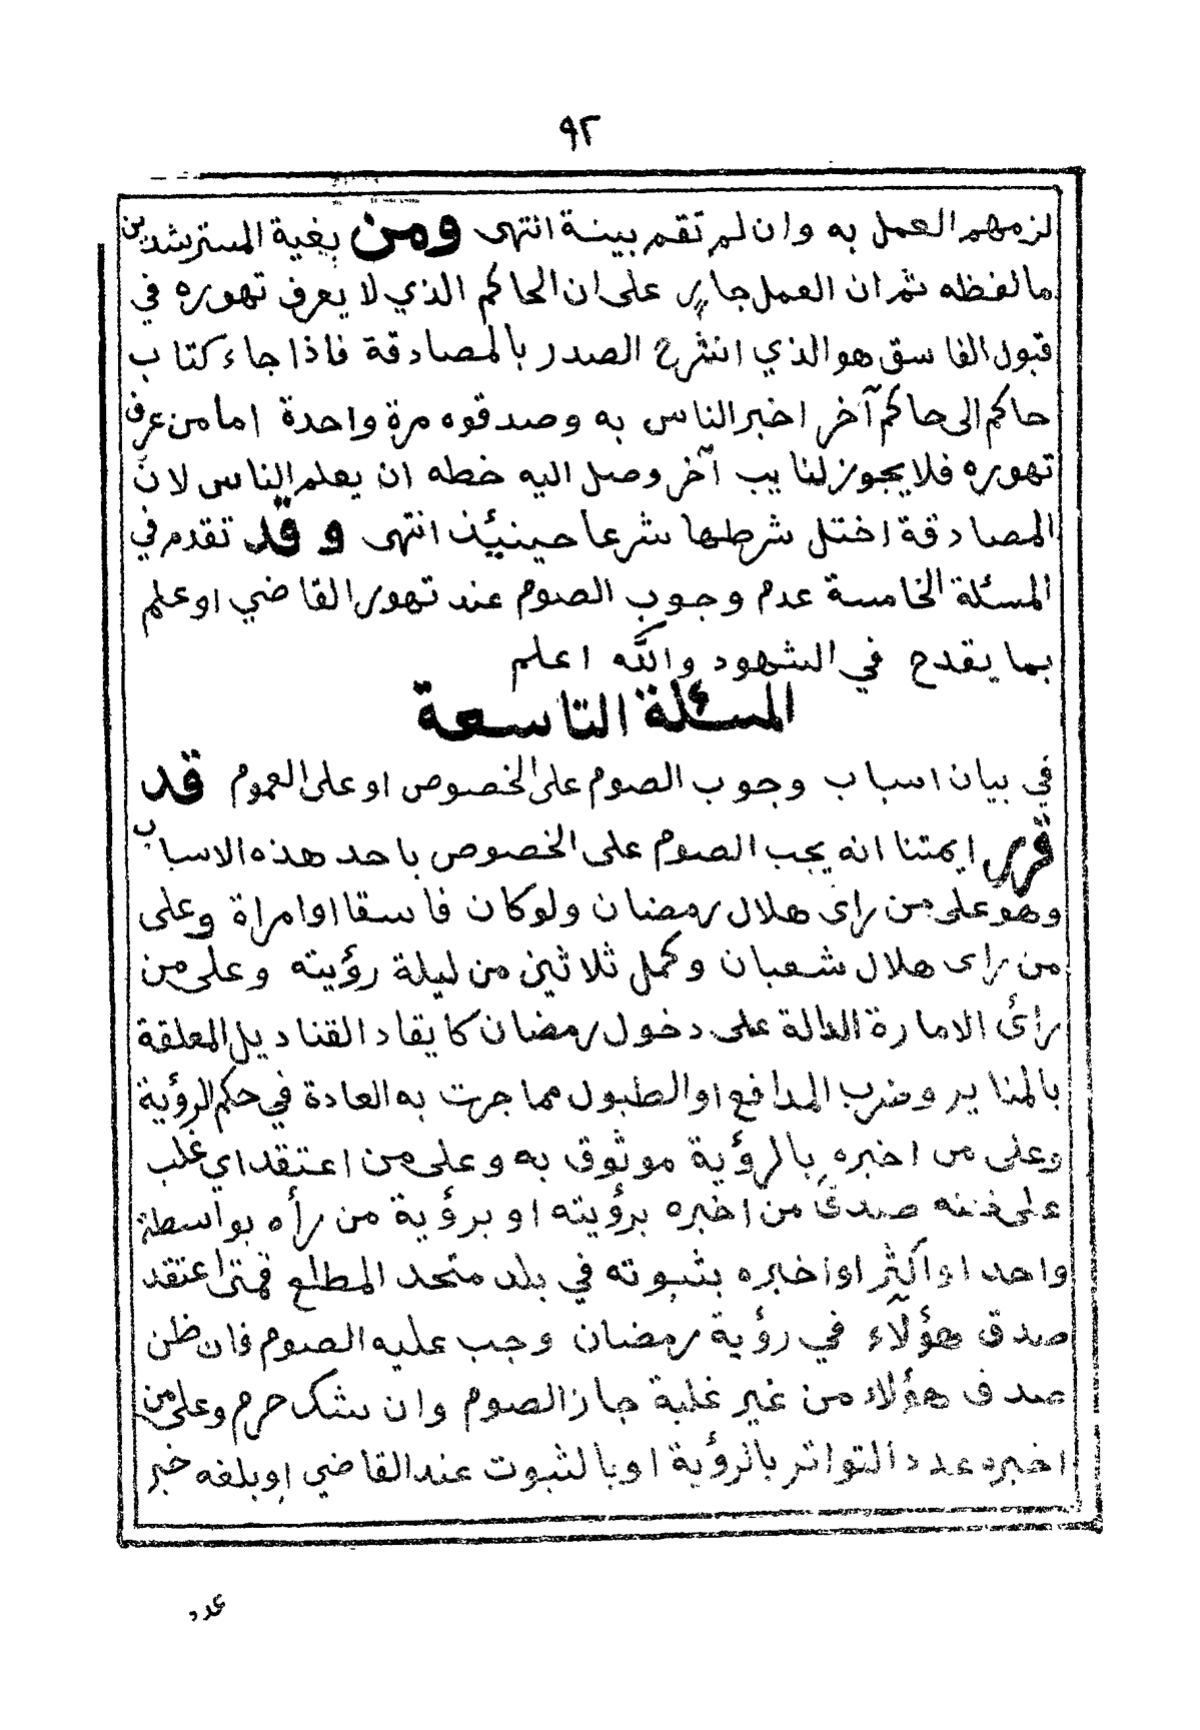 ٩٢
لزمهم العمل به وان لم تقم بينة انتهى ومن بغية المسترشدين
ما لفظه ثم ان العمل جار على ان الحاكم الذي لا يعرف تهوره في
قبول الفاسق هو الذي انشرح الصدر بالمصادقة فاذا جاء كتاب
حاكم الى حاكم آخر اخبر الناس به وصدقوه مرة واحدة اما من عرف
تهوره فلا يجوز لنايب آخر وصل اليه خطه ان يعلم الناس لان
المصادقة اختل شرطها شرعا حينئذ انتهى وقد تقدم في
المسئلة الخامسة عدم وجوب الصوم عند تهور القاضي او علم
بما يقدح في الشهود والله اعلم
المسئلة التاسعة
في بيان اسباب وجوب الصوم على الخصوص او على العموم قد
قرر ايمتنا انه يجب الصوم على الخصوص باحد هذه الاسباب
وهو على من راى هلال رمضان ولو كان فاسقا او امراة وعلى
من راى هلال شعبان وكمل ثلاثين من ليلة رؤيته وعلى من
رائ الامارة الدالة على دخول رمضان كايقاد القناديل المعلقة
بالمناير وضرب المدافع او الطبول مما جرت به العادة في حكم الرؤية
وعلى من اخبره بالرؤية موثوق به وعلى من اعتقد اي غلب
على ظنه صدق من اخبره برؤيته او برؤية من رأه بواسطة
واحد او اكثر او اخبره بثبوته في بلد متحد المطلع فمتى اعتقد
صدق هؤلآء في رؤية رمضان وجب عليه الصوم فان ظن
صدق هؤلاء من غير غلبة جاز الصوم وان شك حرم وعلى من
اخبره عدد التواتر بالرؤية او بالثبوت عند القاضي او بلغه خبر
عدد